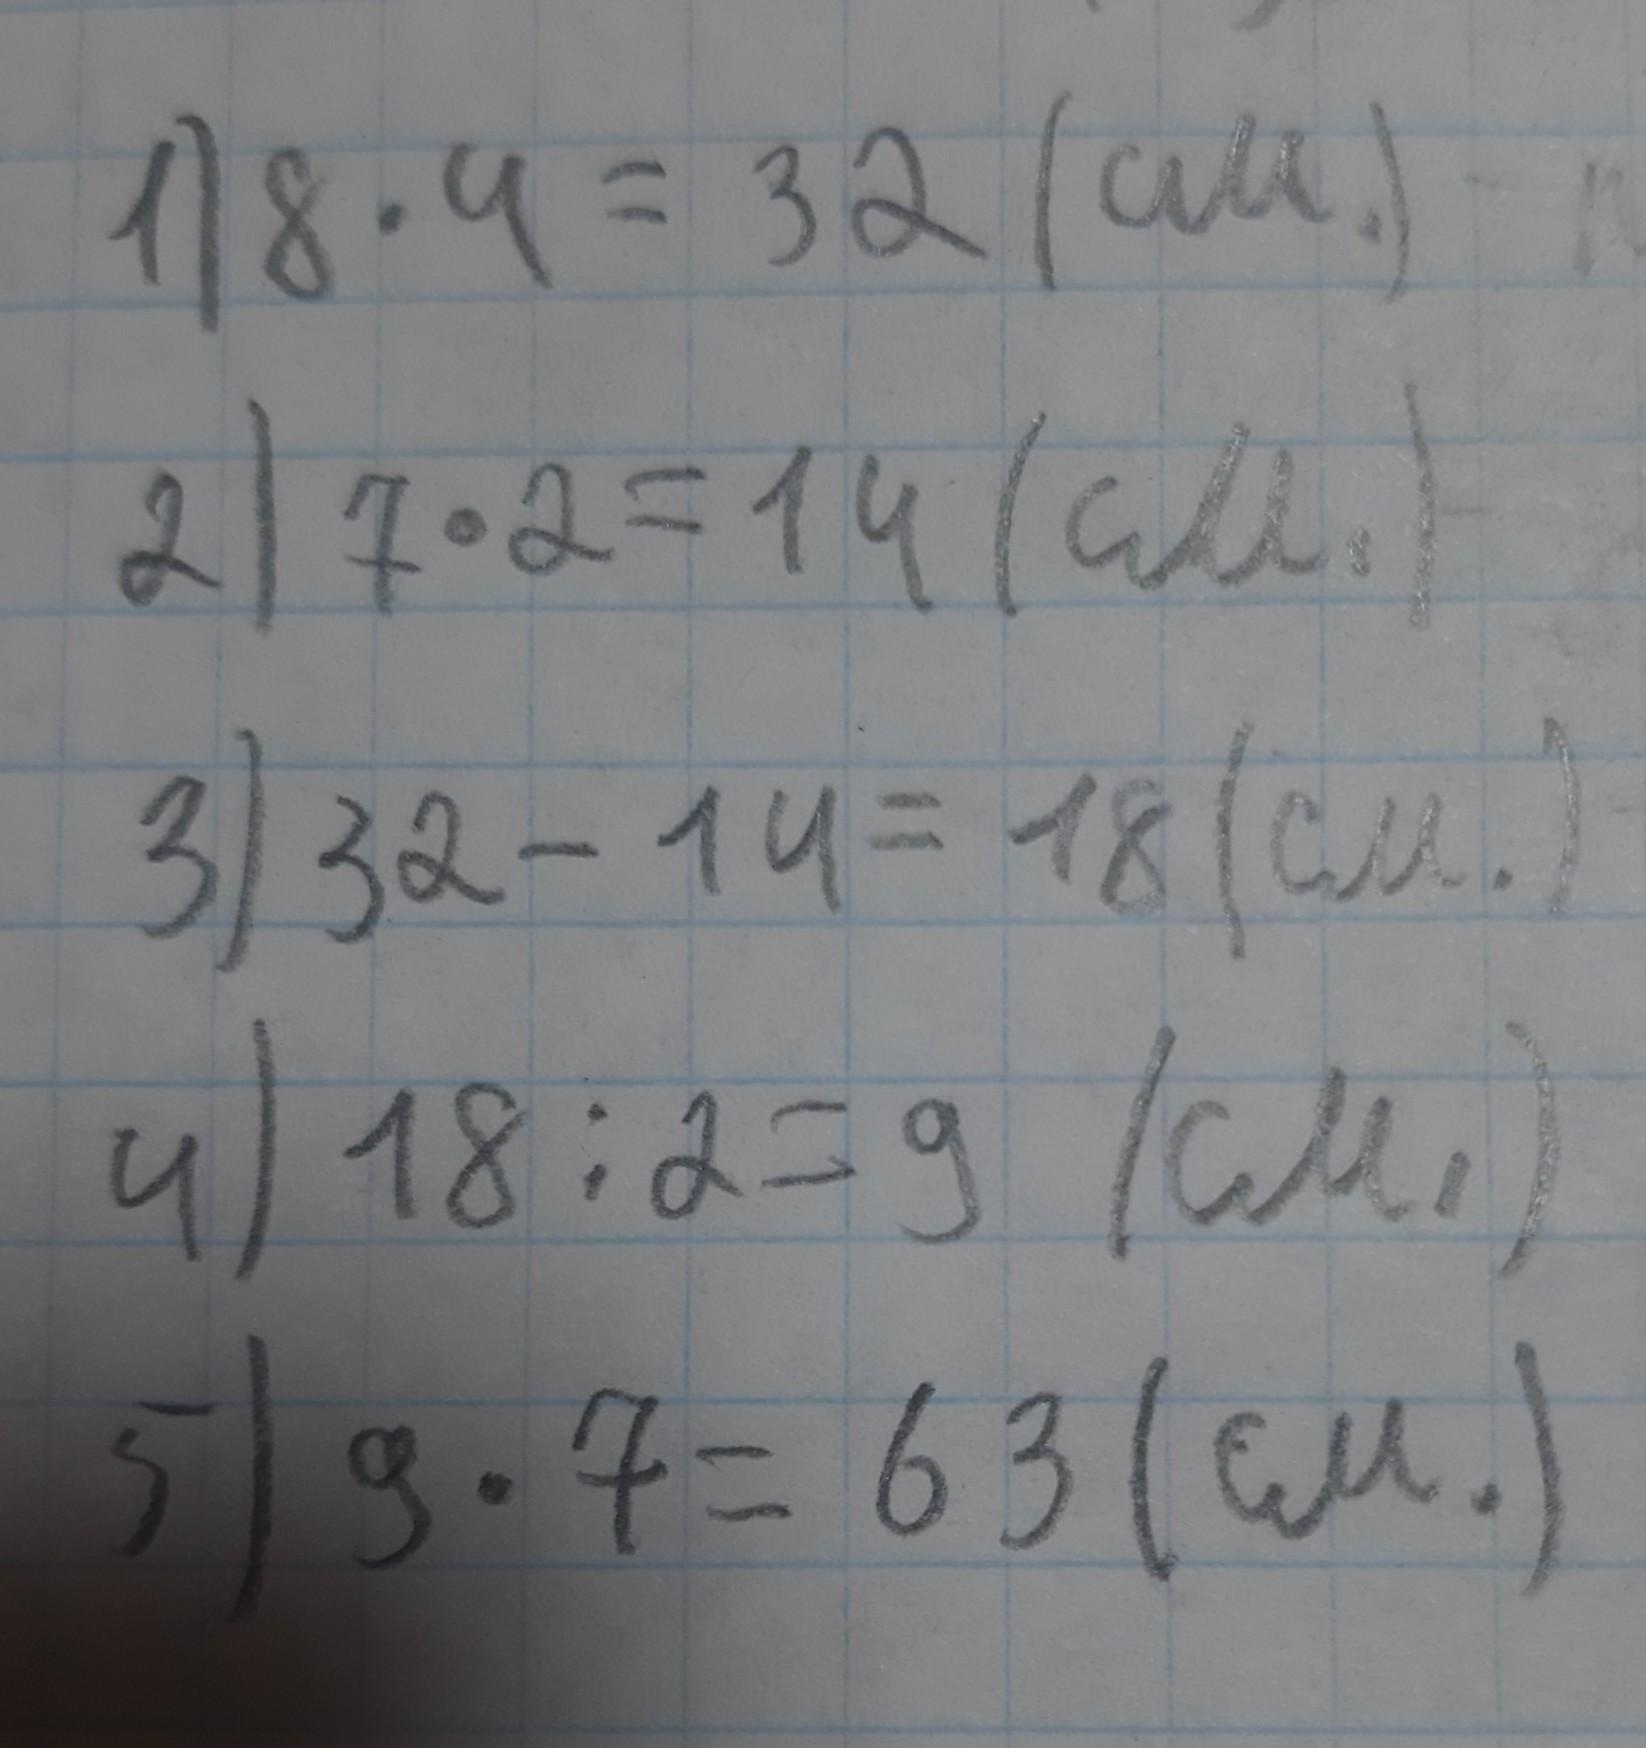 1) 8 · 4 = 32 (см.) -
2) 7 · 2 = 14 (см.) -
3) 32 - 14 = 18 (см.)
4) 18 : 2 = 9 (см.)
5) 9 · 7 = 63 (см.)